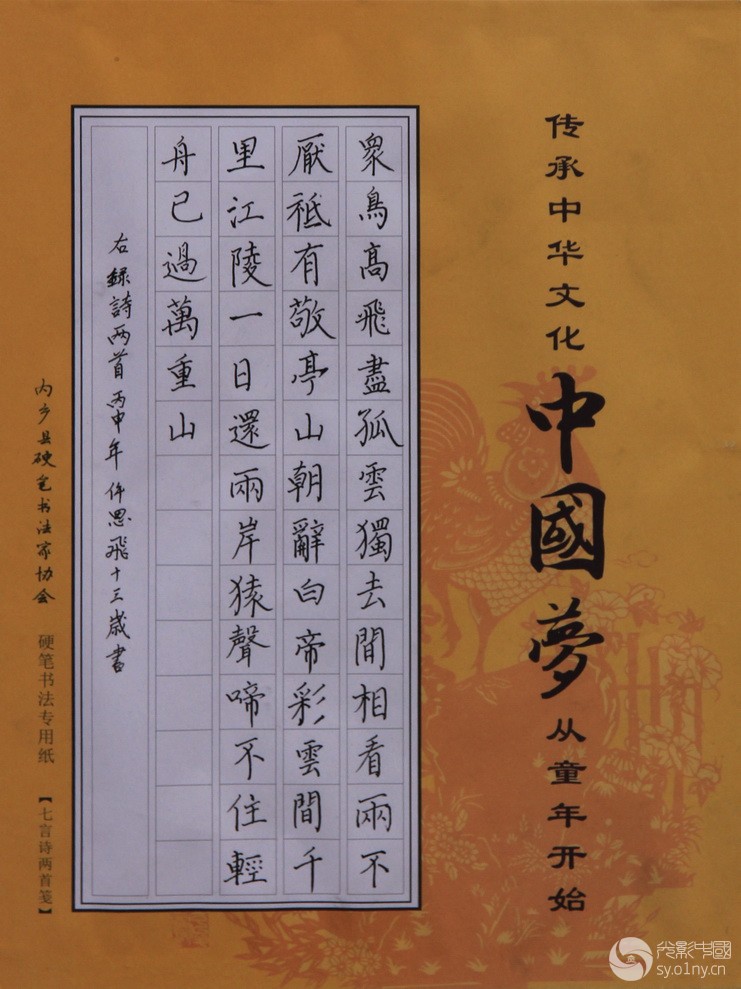 传承中华文化
中國夢
从童年开始
衆鳥高飛盡孤雲獨去間相看兩不
厭祗有敬亭山朝辭白帝彩雲間千
里江陵一日還兩岸猿聲啼不住輕
舟已過萬重山
右録詩两首丙申年仵思飛十三歲書
内乡县硬笔书法家协会
硬笔书法专用纸
【七言诗两首笺】
光影中國
sy.01ny.cn